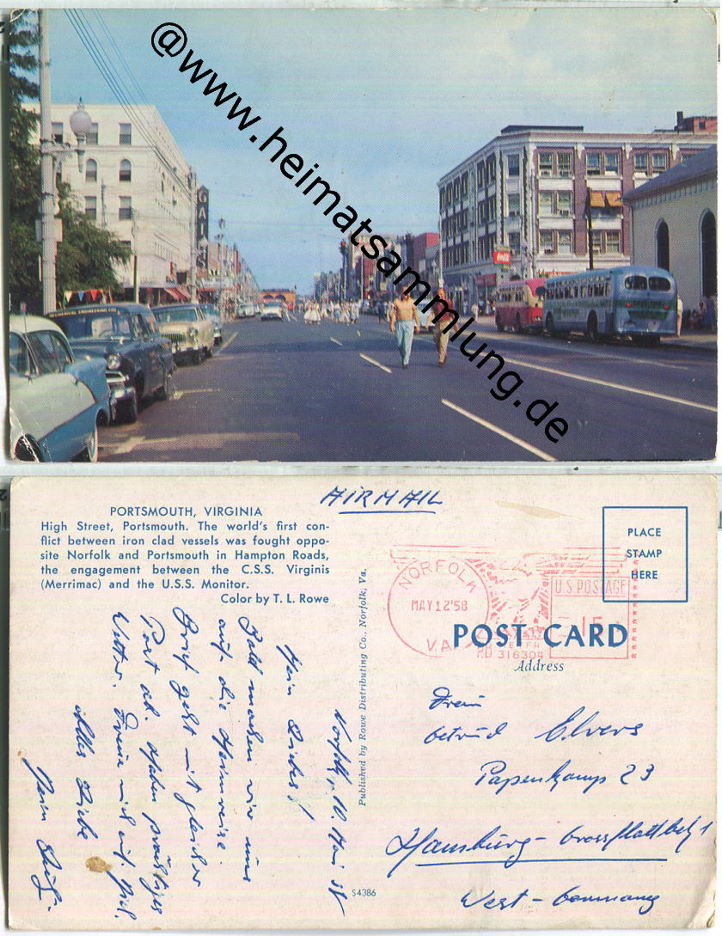 @www.heimatsammlung.de
GATES
PORTSMOUTH, VIRGINIA
High Street, Portsmouth. The world's first con-
flict between iron clad vessels was fought oppo-
site Norfolk and Portsmouth in Hampton Roads,
the engagement between the C.S.S. Virginia
(Merrimac) and the U.S.S. Monitor.
Color by T. L. Rowe
AIRMAIL
PLACE
STAMP
HERE
NORFOLK
MAY 12 '58
VA
U.S. POSTAGE
15
316304
POST CARD
Address
Published by Rowe Distributing Co., Norfolk, Va.
S4386
Frau
Gertrud Elvers
Papenkamp 23
Hamburg - Grossflottbek 1
West-Germany
Norfolk, 10. Mai 58
Mein Liebes!
Bald machen wir uns
auf die Heimreise.
Brief geht mit gleicher
Post ab. Haben prächtiges
Wetter. Freue mich auf
Alles Liebe
Dein